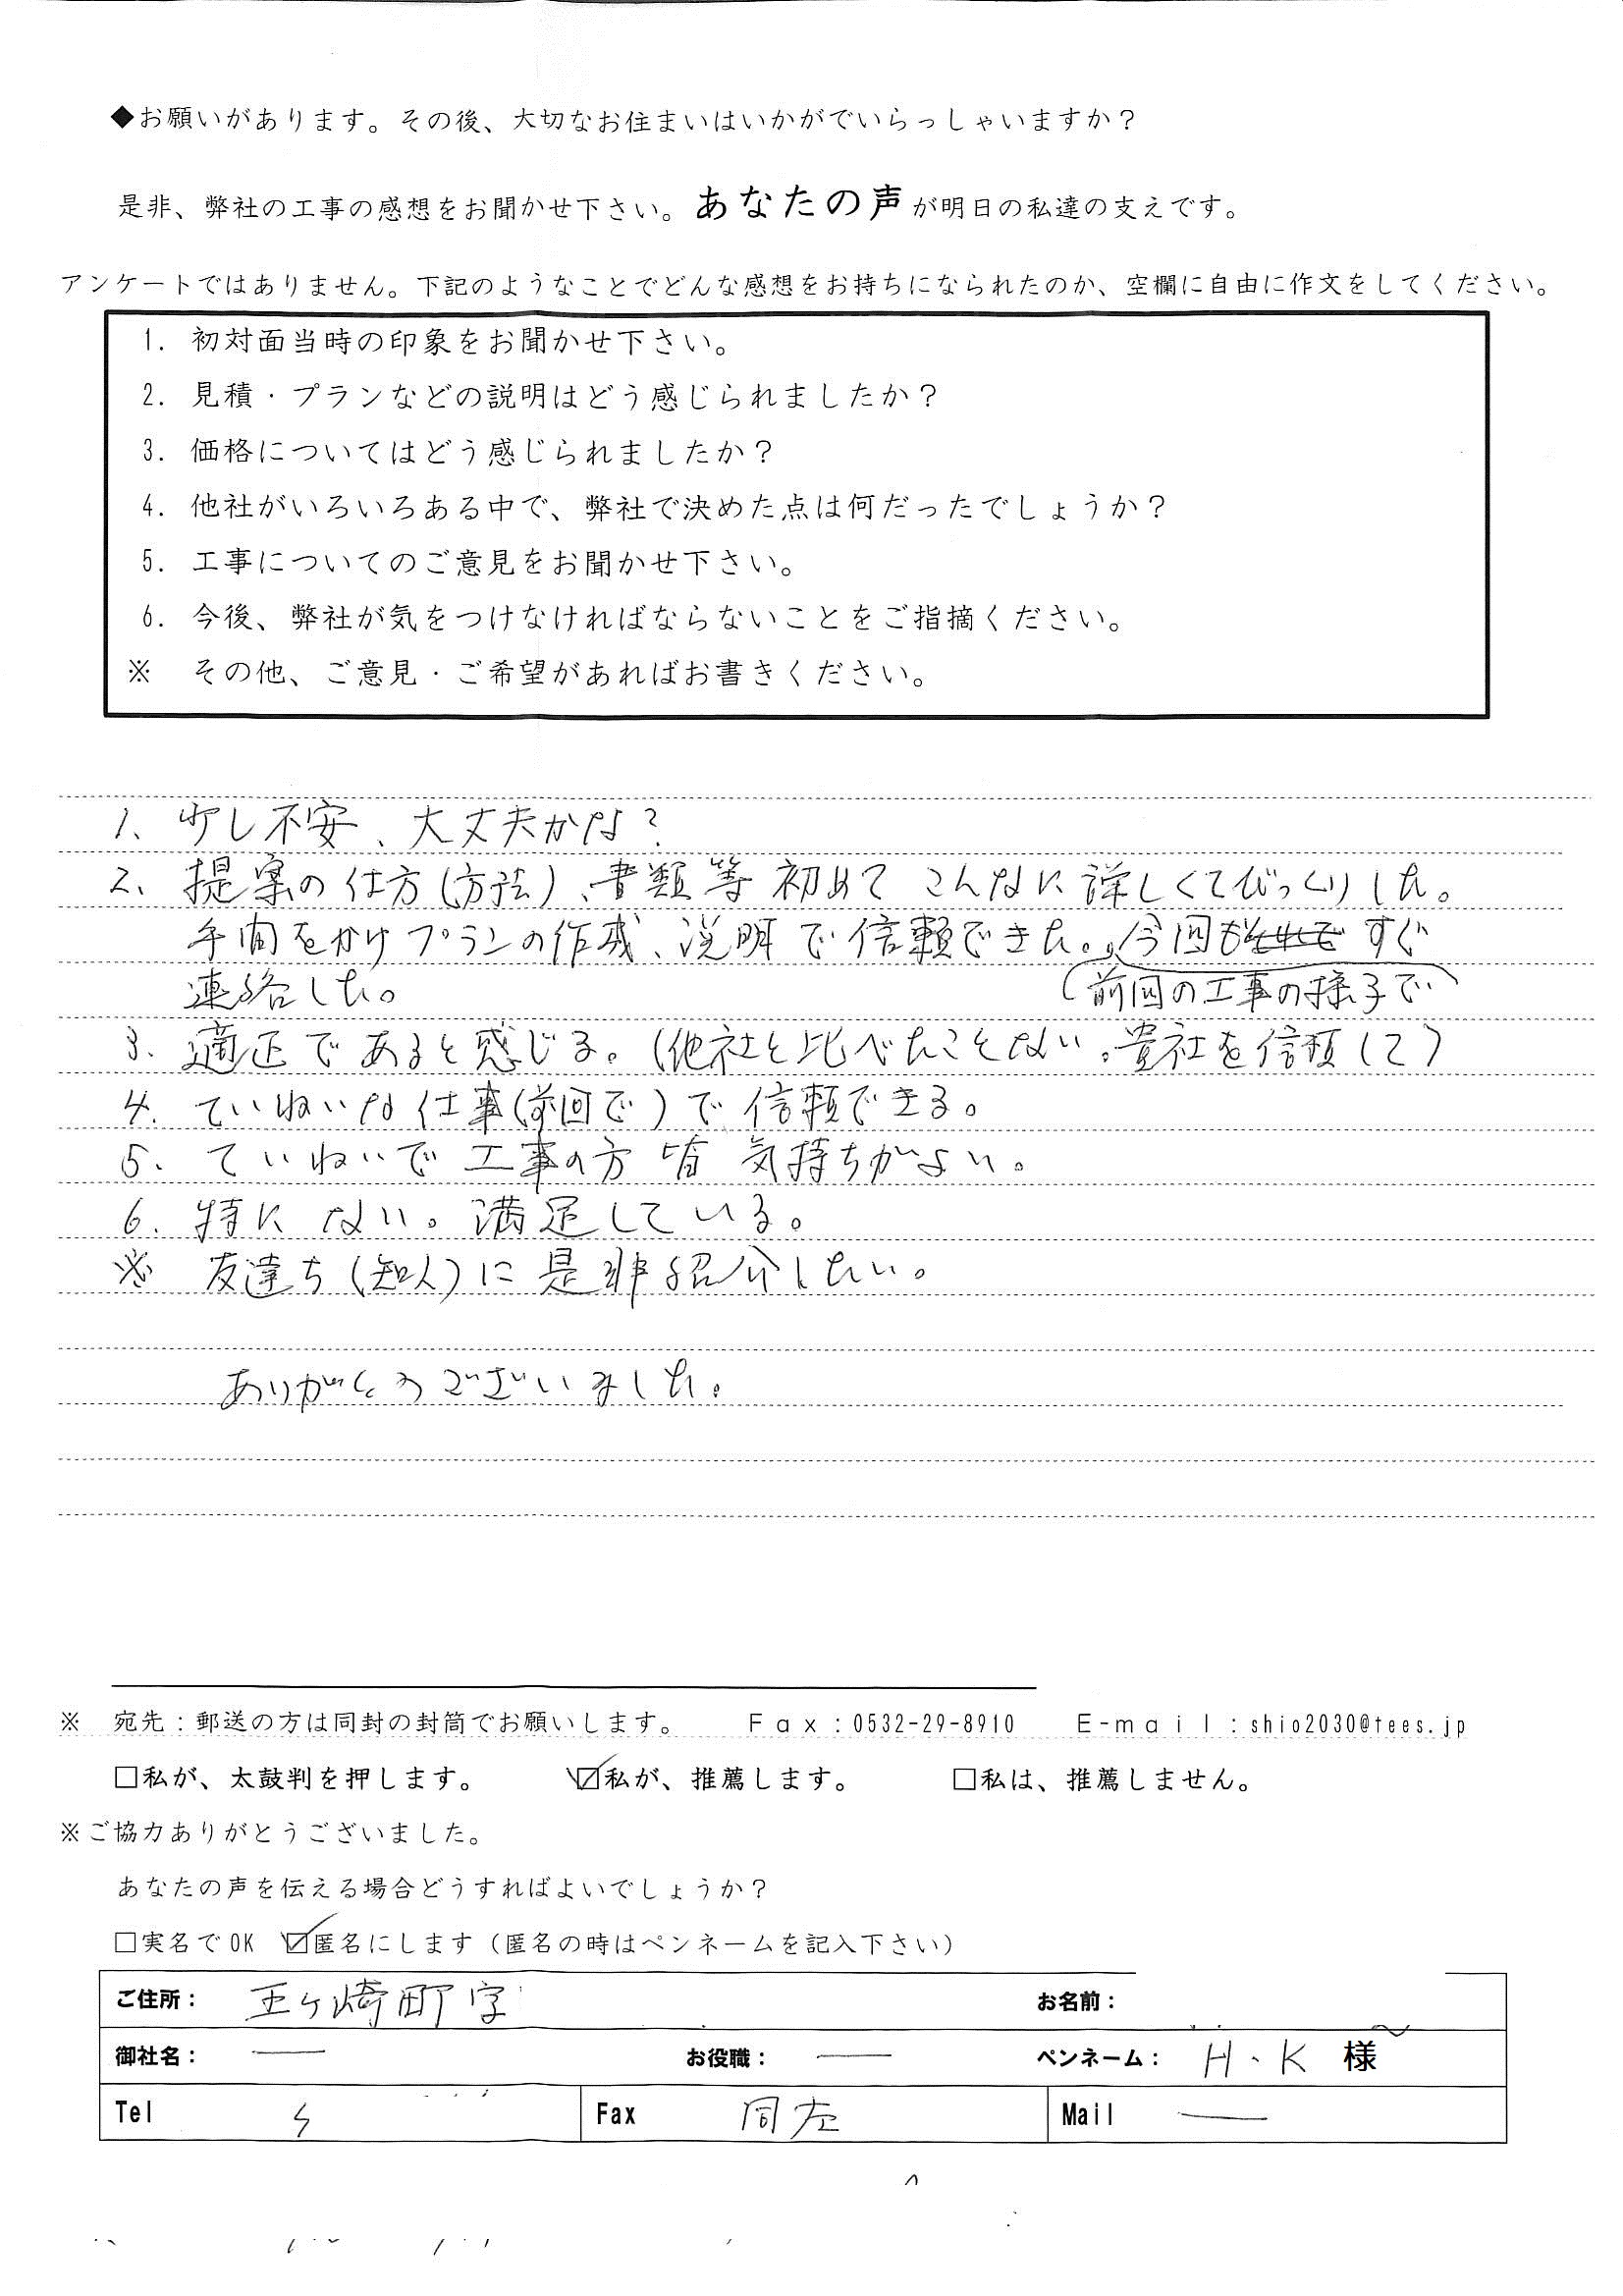 ◆お願いがあります。その後、大切なお住まいはいかがでいらっしゃいますか？
是非、弊社の工事の感想をお聞かせ下さい。あなたの声が明日の私達の支えです。
アンケートではありません。下記のようなことでどんな感想をお持ちになられたのか、空欄に自由に作文をしてください。
1. 初対面当時の印象をお聞かせ下さい。
2. 見積・プランなどの説明はどう感じられましたか？
3. 価格についてはどう感じられましたか？
4. 他社がいろいろある中で、弊社で決めた点は何だったでしょうか？
5. 工事についてのご意見をお聞かせ下さい。
6. 今後、弊社が気をつけなければならないことをご指摘ください。
※ その他、ご意見・ご希望があればお書きください。
1、少し不安、大丈夫かな？
2、提案の仕方(方法)、書類等 初めて こんなに詳しくてびっくりした。
手間をかけプランの作成、説明で信頼できた。今回も すぐ
連絡した。 (前回の工事の様子で)
3. 適正であると感じる。(他社と比べたことない。貴社を信頼して)
4. ていねいな仕事(前回で)で信頼できる。
5. ていねいで 工事の方 皆 気持ちがよい。
6. 特に ない。満足している。
※ 友達ち(知人)に是非紹介したい。
ありがとうございました。
※ 宛先：郵送の方は同封の封筒でお願いします。 Fax：0532-29-8910 E-mail：shio2030@tees.jp
□私が、太鼓判を押します。 ☑私が、推薦します。 □私は、推薦しません。
※ご協力ありがとうございました。
あなたの声を伝える場合どうすればよいでしょうか？
□実名でOK ☑匿名にします（匿名の時はペンネームを記入下さい）
ご住所： 王ヶ崎町字 お名前：
御社名： ― お役職： ― ペンネーム： H・K 様
Tel Fax 同左 Mail ―